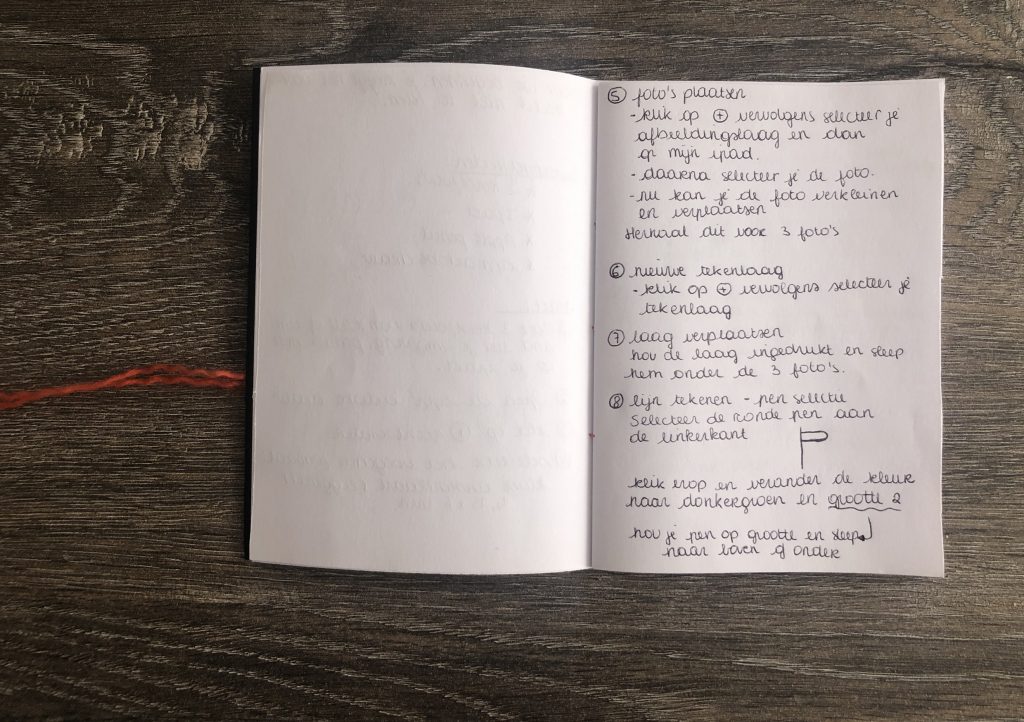 ⑤ foto's plaatsen
- klik op ⊕ vervolgens selecteer je
afbeeldingslaag en dan
op mijn ipad.
- daarna selecteer je de foto.
- nu kan je de foto verkleinen
en verplaatsen
Herhaal dit voor 3 foto's
⑥ nieuwe tekenlaag
- klik op ⊕ vervolgens selecteer je
tekenlaag
⑦ laag verplaatsen
hou de laag ingedrukt en sleep
hem onder de 3 foto's.
⑧ lijn tekenen - pen selectie
Selecteer de ronde pen aan
de linkerkant
klik erop en verander de kleur
naar donkergroen en grootte 2
hou je pen op grootte en sleep
naar boven of onder